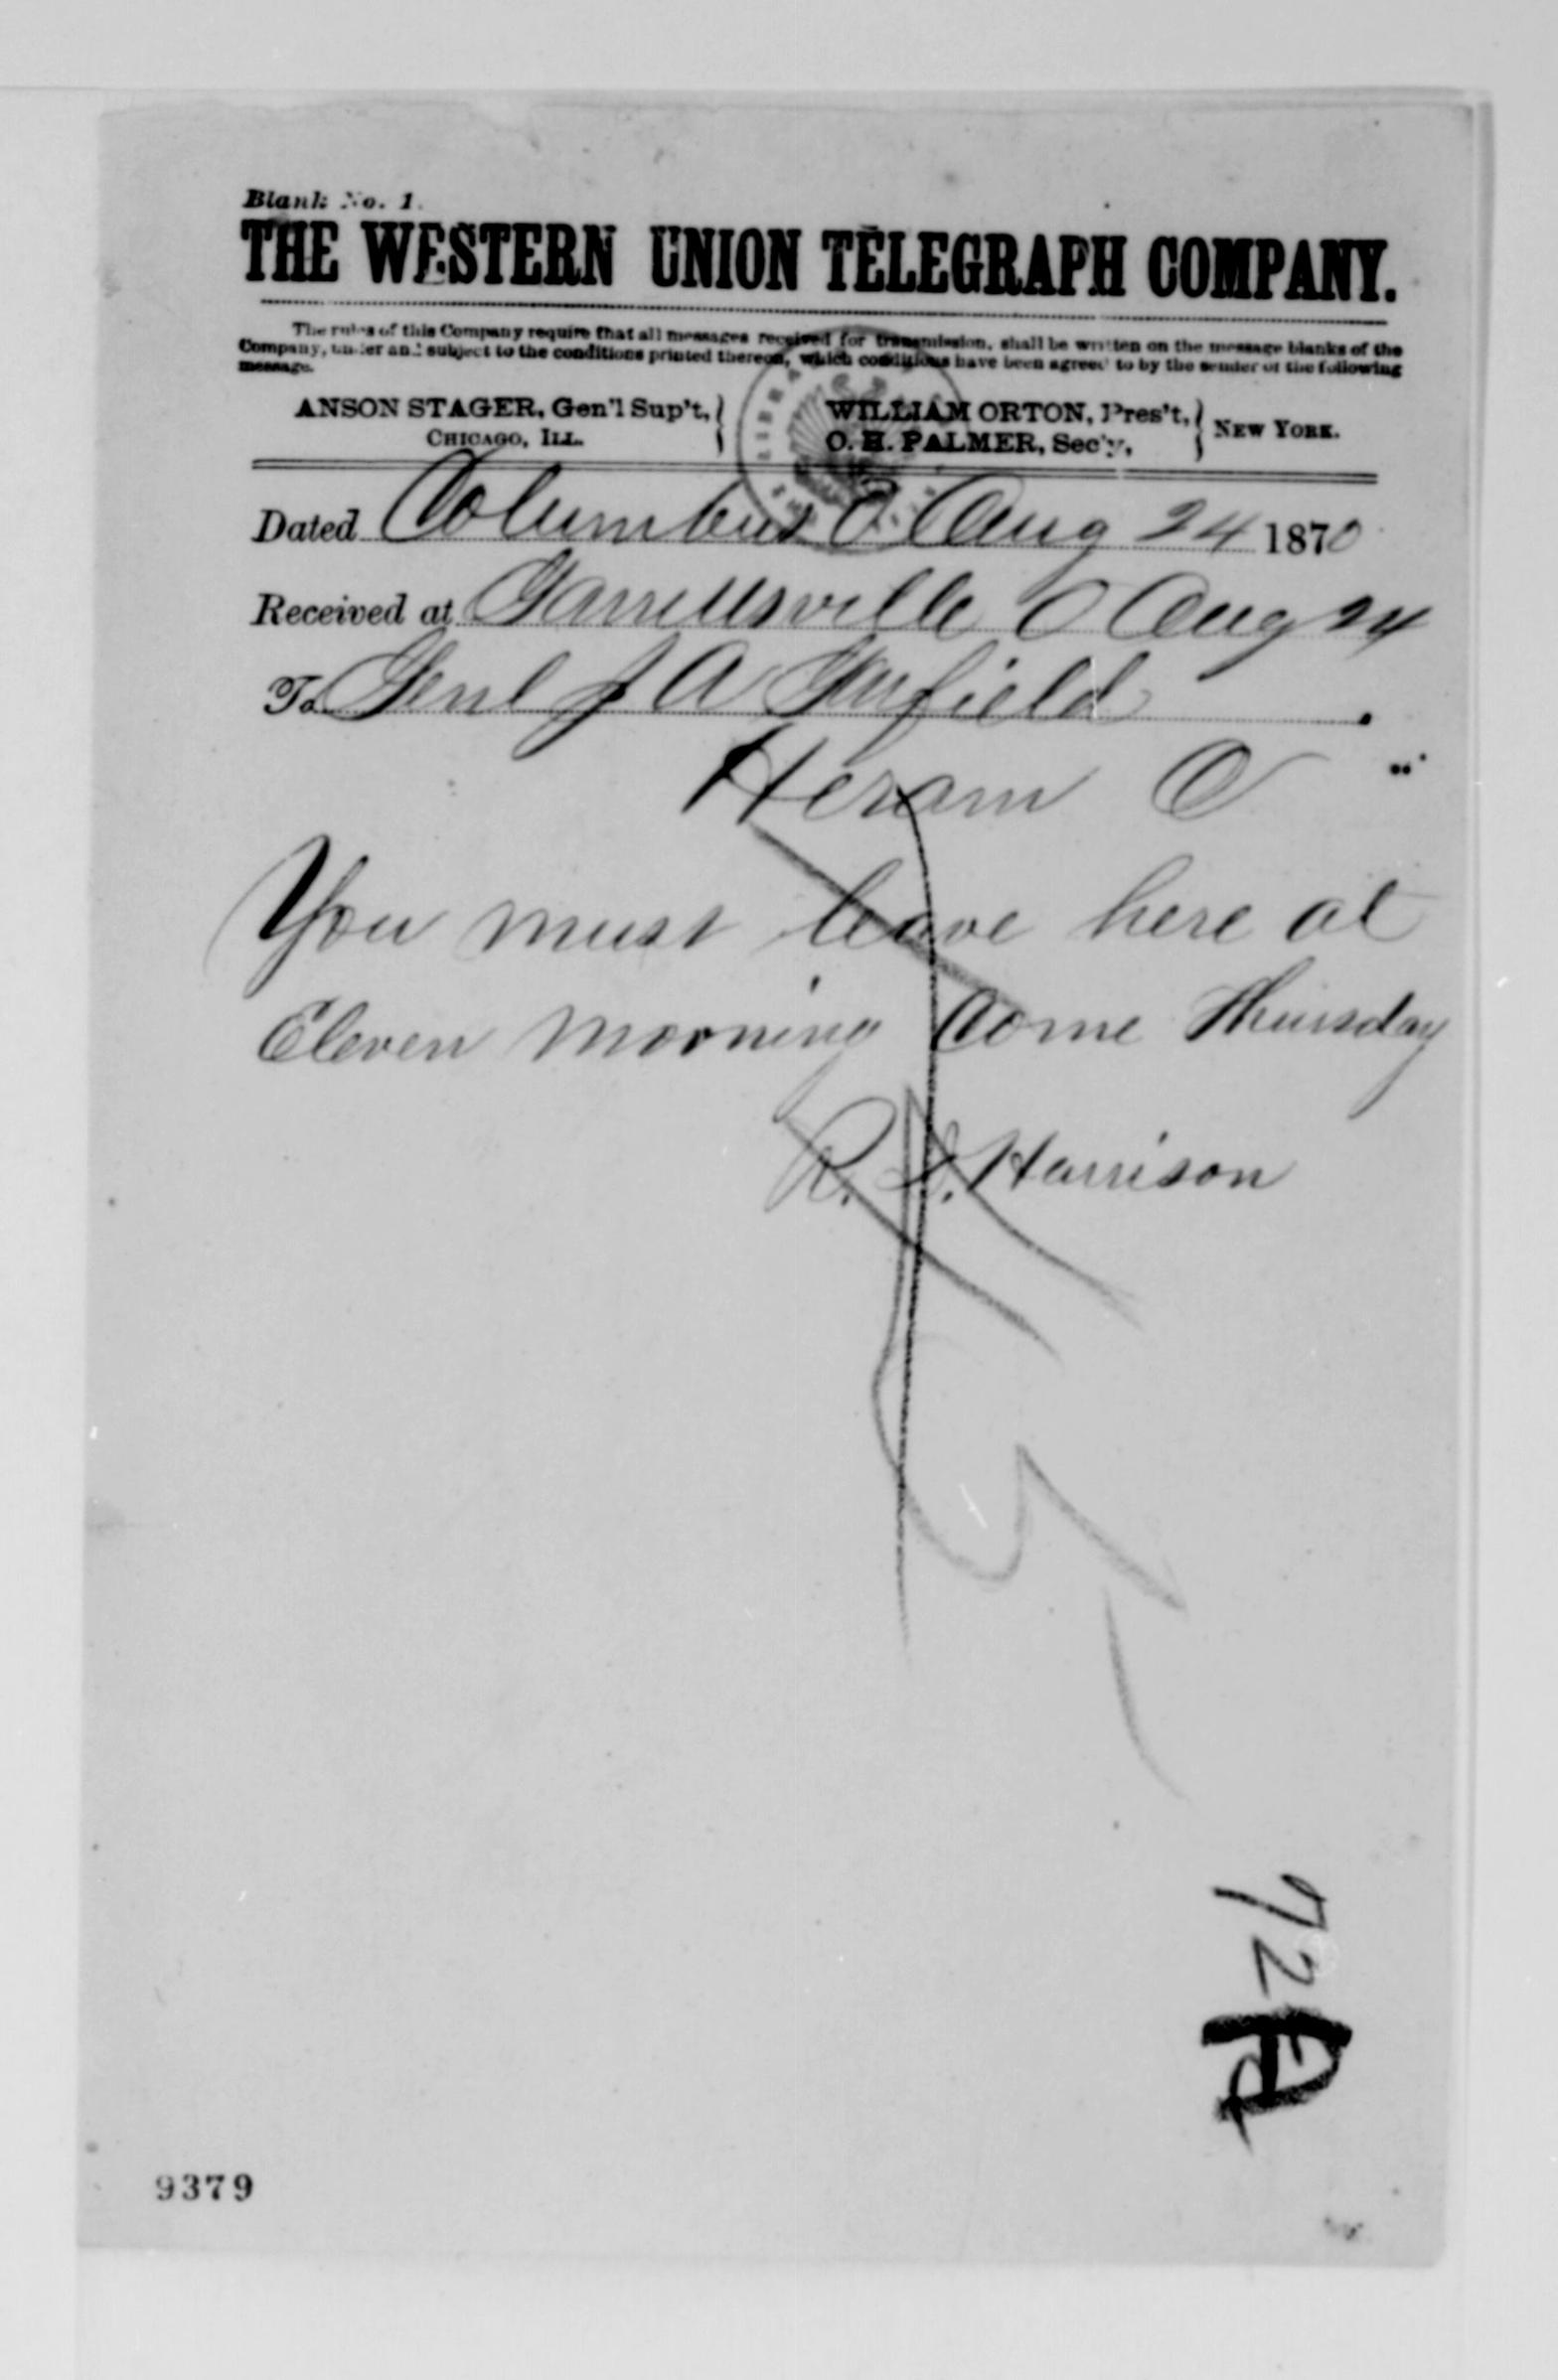 Blank No. 1.
THE WESTERN UNION TELEGRAPH COMPANY.
The rules of this Company require that all messages received for transmission, shall be written on the message blanks of the
Company, under and subject to the conditions printed thereon, which conditions have been agreed to by the sender of the following
message.
ANSON STAGER, Gen'l Sup't, WILLIAM ORTON, Pres't,
CHICAGO, ILL. O. H. PALMER, Sec'y, NEW YORK.
Dated Columbus O Aug 24 1870
Received at Garrettsville O Aug 24
To Genl J A Garfield
Heram O
You must leave here at
Eleven morning Come Thursday
R. Harrison
72
9379